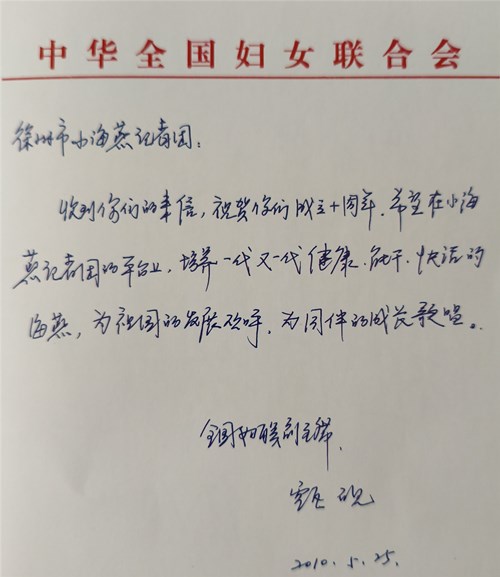 中华全国妇女联合会
徐州市小海燕记者团：
收到你们的来信，祝贺你们成立十周年。希望在小海
燕记者团的平台上，培养一代又一代健康、能干、快活的
海燕，为祖国的发展欢呼，为同伴的成长歌唱。
全国妇联副主席
甄砚
2010.5.25.